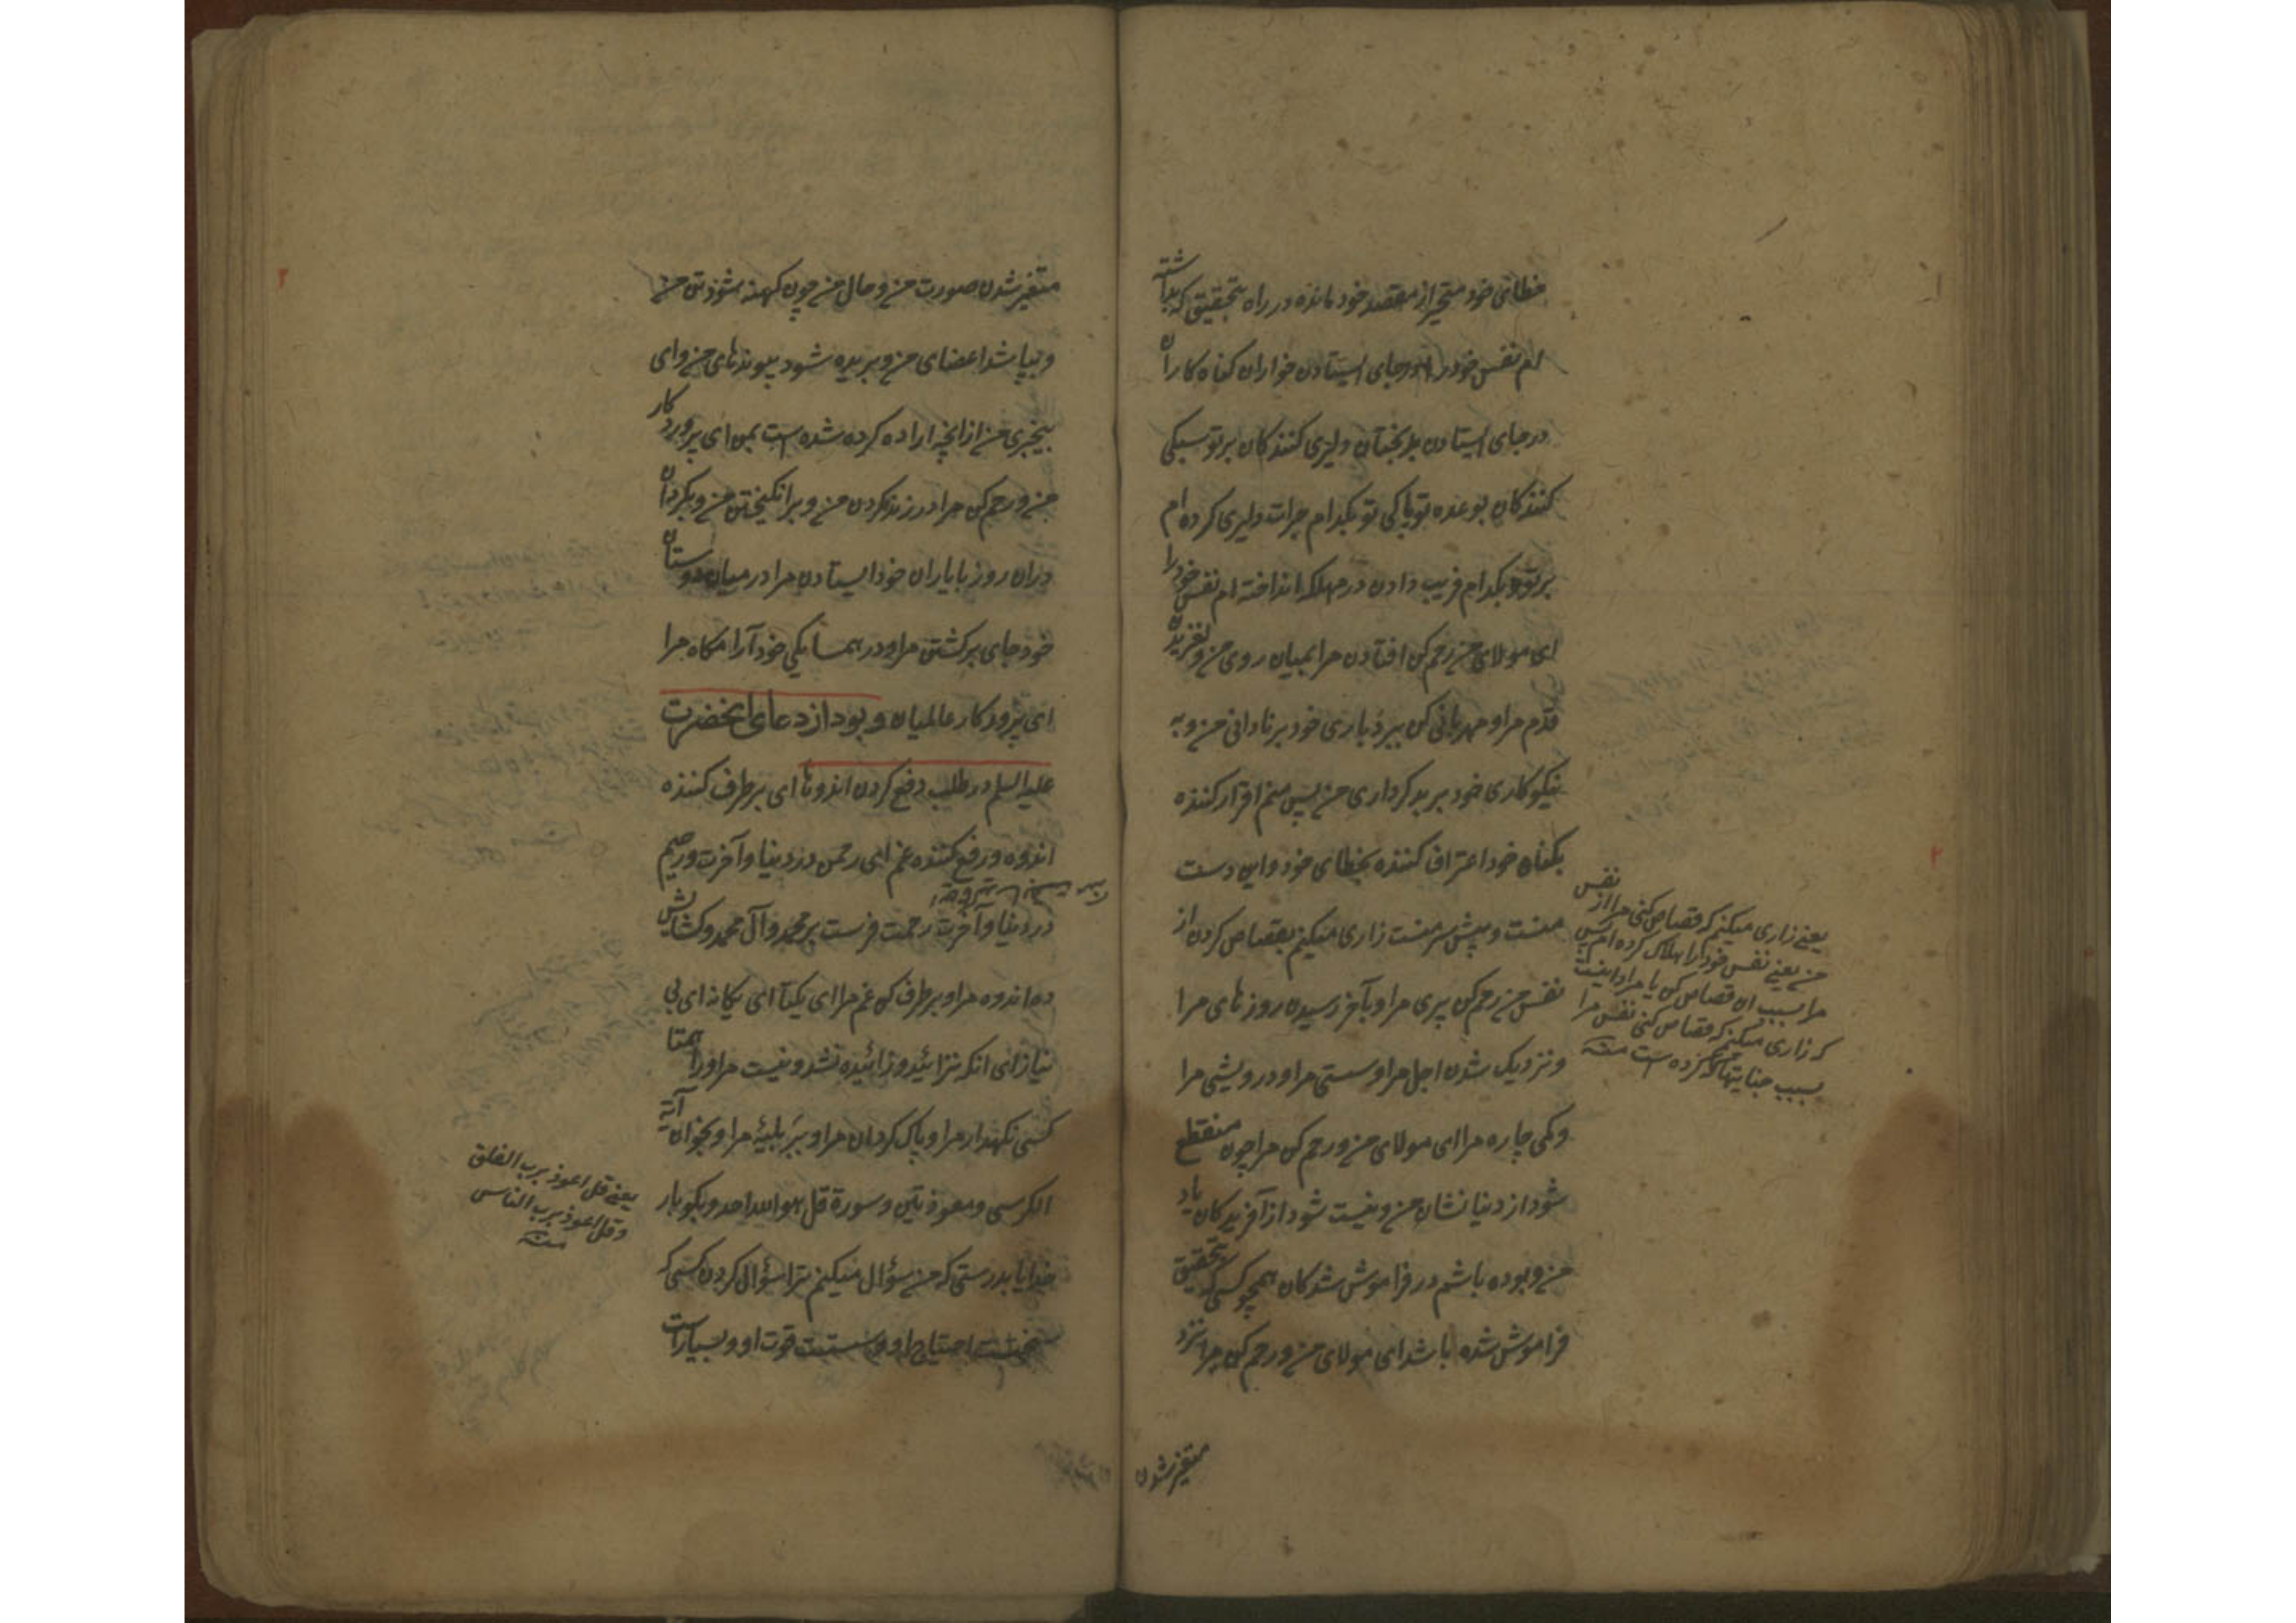 خطائی خود متحیر از مقصد خود مانده در راه بتحقیق که بداشته
ام نفس خود را در جای ایستادن خواران کناه کاران
در جای ایستادن بدبختان دلیری کنندکان بر تو سبکی
کنندکان بوعده تو پاکی تو بکدام جرات دلیری کرده ام
بر تو و بکدام فریب دادن در مهلکه انداخته ام نفس خود را
ای مولای من رحم کن افتادن مرا بمیان روی من و لغزیدن
قدم مرا و مهربانی کن ببردباری خود بر نادانی من و به
نیکوکاری خود بر بدکرداری من پس منم اقرار کننده
بکناه خود اعتراف کننده بخطای خود و این دست
منست و پیش سر منست زاری میکنم بقصاص کردن از
نفس من رحم کن پیری مرا و بآخر رسیدن روزهای مرا
و نزدیک شدن اجل مرا و سستی مرا و درویشی مرا
و کمی چاره مرا ای مولای من و رحم کن مرا چون منقطع
شود از دنیا نشان من و نیست شود از آفریدکان یاد
من و بوده باشم در فراموش شدکان همچو کسی که بتحقیق
فراموش شده باشد ای مولای من و رحم کن مرا نزد
متغیر شدن
یعنی زاری میکنم که قصاص کنی مرا از نفس
من یعنی نفس خود را هلاک کرده ام پس
مرا بسبب ان قصاص کن یا مراد اینست
که زاری میکنم که قصاص کنی نفس مرا
بسبب جنایتها که کرده است منه
متغیر شدن صورت من و حال من چون کهنه شود تن من
و بپاشد اعضای من و بریده شود پیوندهای من وای
بیخبری من از انچه اراده کرده شده است بمن ای پروردکار
من و رحم کن مرا در زنده کردن من و برانکیختن من و بکردان
دران روز با یاران خود ایستادن مرا و در میان دوستان
خود جای برکشتن مرا و در همسایکی خود آرامکاه مرا
ای پروردکار عالمیان و بود از دعای انحضرت
علیه السلم در طلب دفع کردن اندوها ای برطرف کننده
اندوه و رفع کننده غم ای رحمن در دنیا و آخرت و رحیم
در دنیا و آخرت رحمت فرست بر محمد و آل محمد و کشایش
ده اندوه مرا و برطرف کن غم مرا ای یکتا ای یکانه ای بی
نیاز ای انکه نزائید و زائیده نشد و نیست مر او را همتا
کسی نکهدار مرا و پاک کردان مرا و ببر بلیۀ مرا و بخوان آیة
الکرسی و معوذتین و سورة قل هو الله احد و بکو بار
خدایا بدرستی که من سؤال میکنم ترا سؤال کردن کسی که
سخت است احتیاج او و سست است قوت او و بسیار است
یعنی قل اعوذ برب الفلق
و قل اعوذ برب الناس
منه